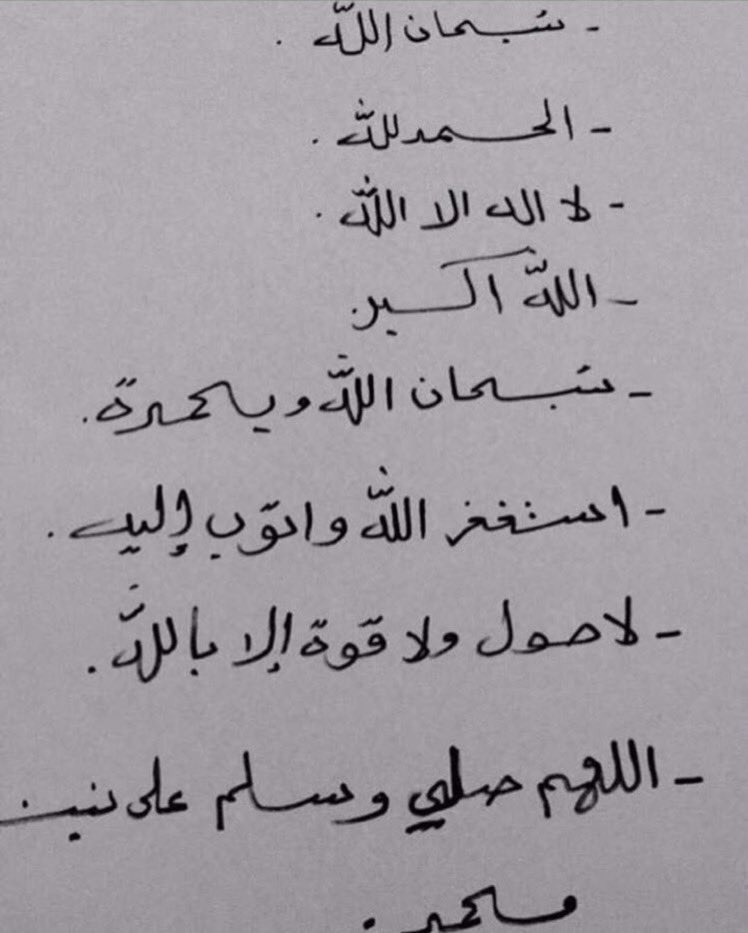 - سبحان الله .
- الحمدلله .
- لا اله الا الله .
- الله اكبر.
- سبحان الله وبحمدة .
- استغفر الله واتوب إليه .
- لاحول ولا قوة إلا بالله .
- اللهم صلي وسلم على نبينا
محمد .